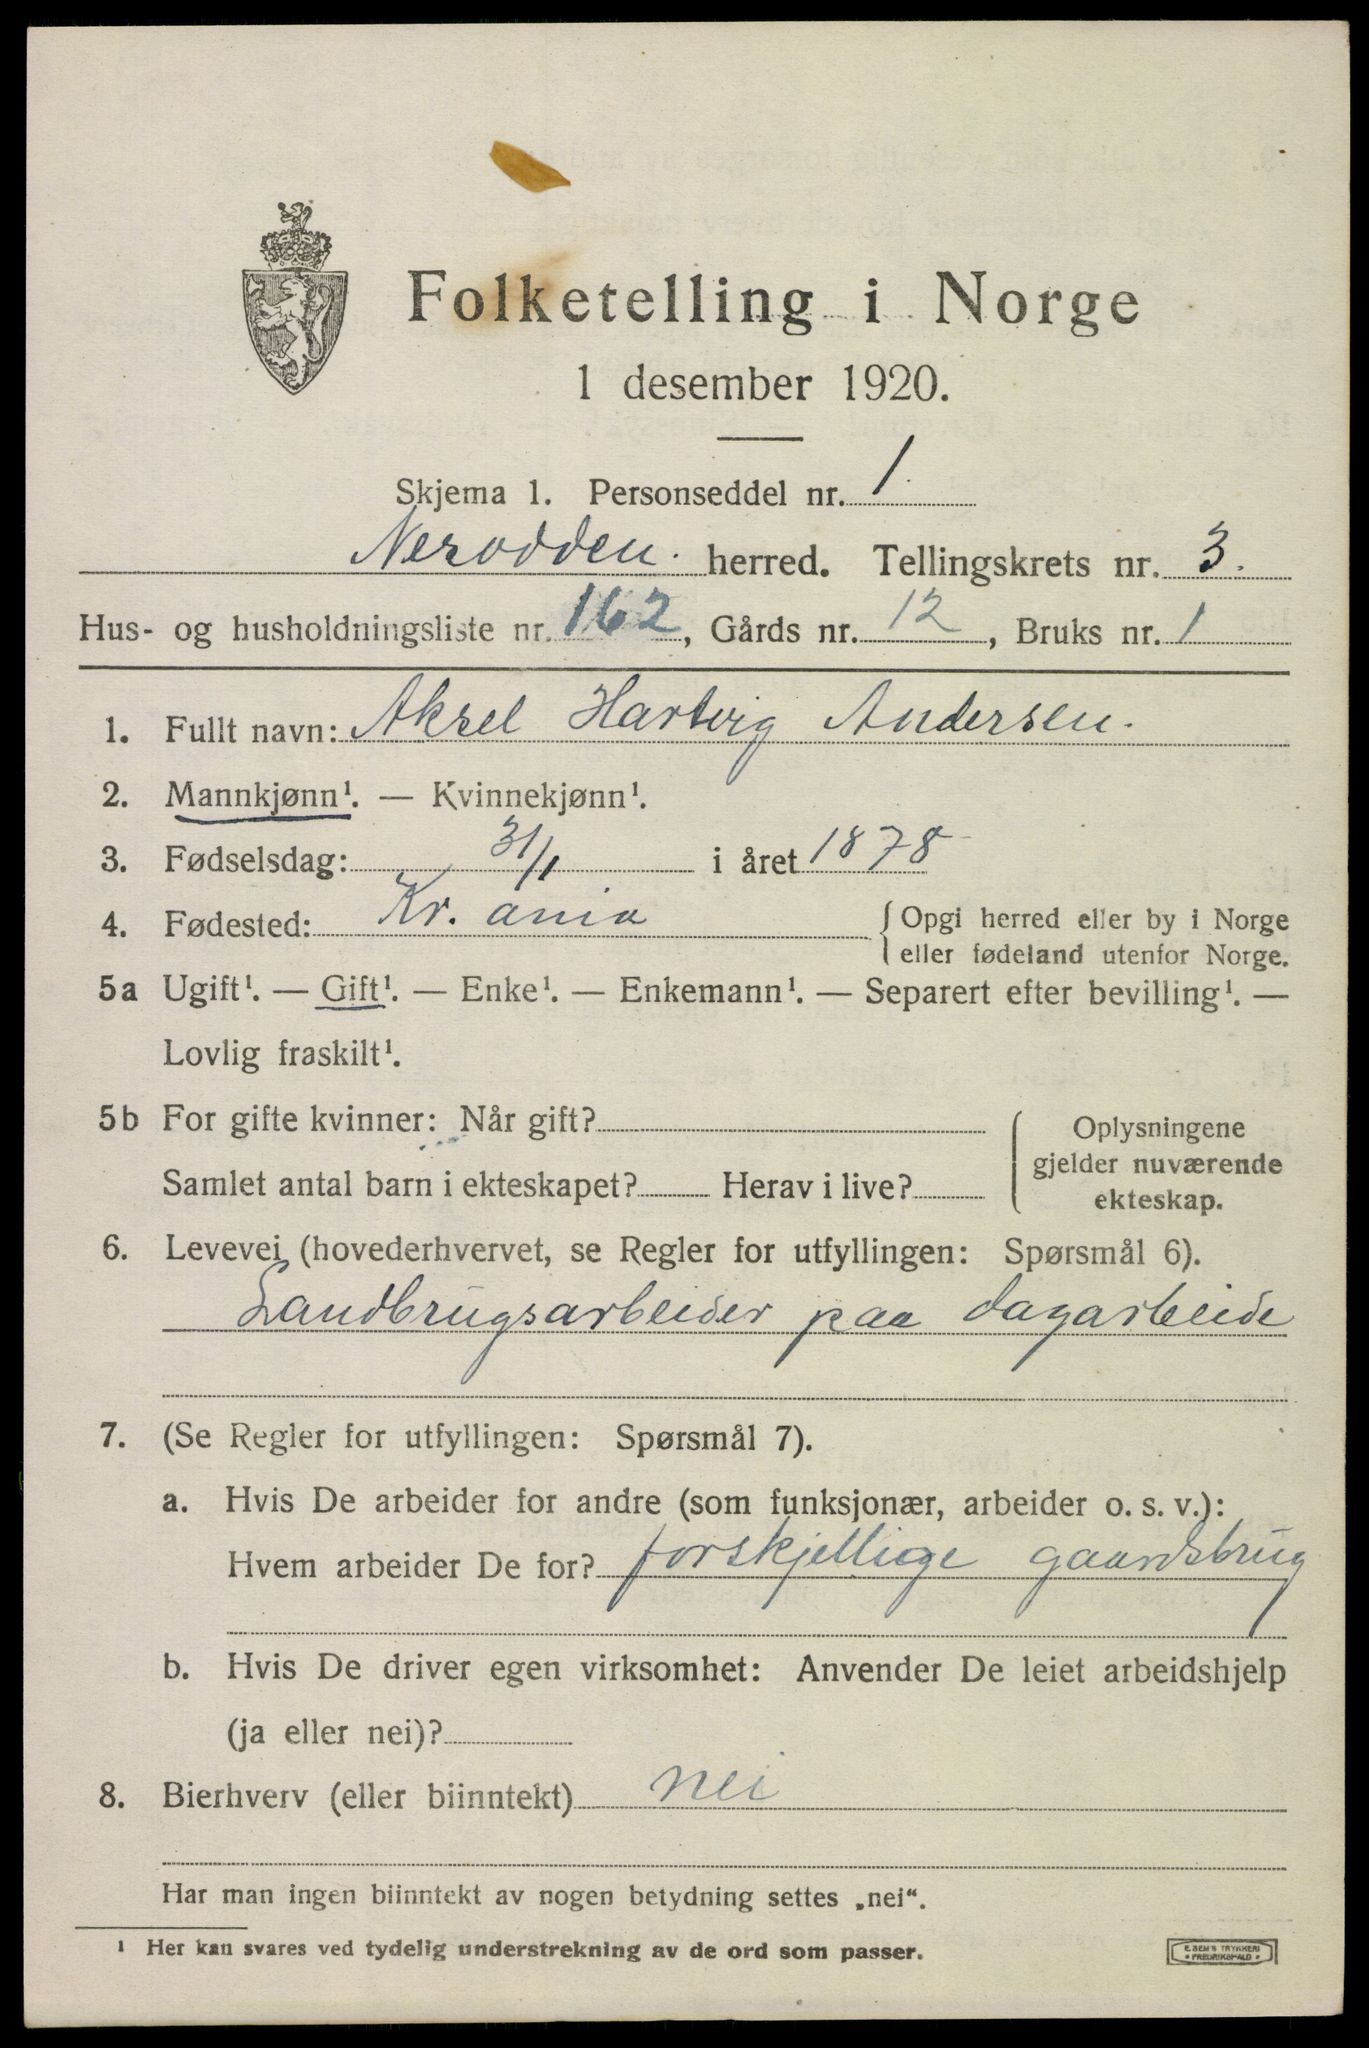 Folketelling i Norge
1 desember 1920.
Skjema 1. Personseddel nr. 1.
Nesodden. herred. Tellingskrets nr. 3.
Hus- og husholdningsliste nr. 162, Gårds nr. 12, Bruks nr. 1
1. Fullt navn: Aksel Hartvig Andersen.
2. Mannkjønn¹. — Kvinnekjønn¹.
3. Fødselsdag: 31/1 i året 1878
4. Fødested: Kr. ania { Opgi herred eller by i Norge
eller fødeland utenfor Norge.
5a Ugift¹. — Gift¹. — Enke¹. — Enkemann¹. — Separert efter bevilling¹. —
Lovlig fraskilt¹.
5b For gifte kvinner: Når gift?
Samlet antal barn i ekteskapet? Herav i live?
Oplysningene
gjelder nuværende
ekteskap.
6. Levevei (hovederhvervet, se Regler for utfyllingen: Spørsmål 6).
Landbrugsarbeider paa dagarbeide
7. (Se Regler for utfyllingen: Spørsmål 7).
a. Hvis De arbeider for andre (som funksjonær, arbeider o. s. v.):
Hvem arbeider De for? forskjellige gaardsbrug
b. Hvis De driver egen virksomhet: Anvender De leiet arbeidshjelp
(ja eller nei)?
8. Bierhverv (eller biinntekt) nei
Har man ingen biinntekt av nogen betydning settes „nei“.
¹ Her kan svares ved tydelig understrekning av de ord som passer.
E. SEM'S TRYKKERI
• FREDRIKSHALD •